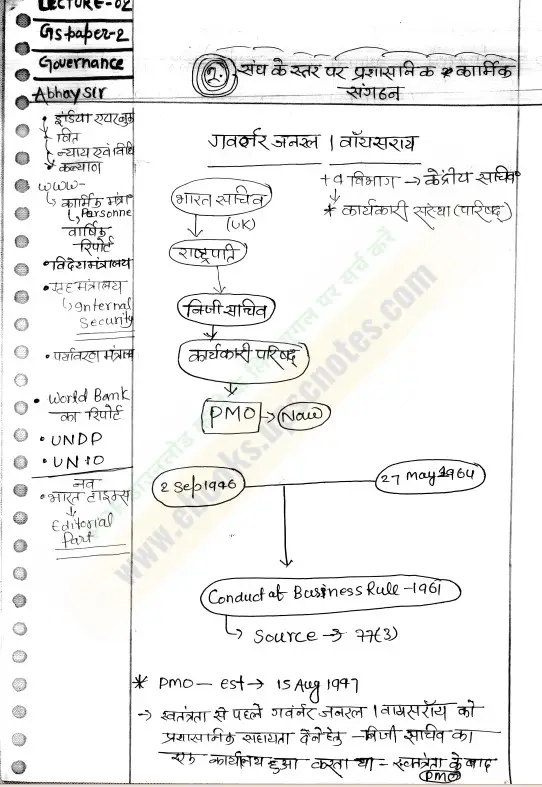 LECTURE-02
GS paper-2
Governance
Abhay Sir
• इंडिया एयरनुक
• वित्त
न्याय एवं विधि
• कल्याण
www-
कार्मिक मंत्रा
Personne
वार्षिक
रिपोर्ट
• विदेश मंत्रालय
• गृह मंत्रालय
Internal
Security
• पर्यावरण मंत्रा
• World Bank
का रिपोर्ट
• UNDP
• UNIO
नव
• भारत टाइम्स
Editorial
Part
2. संघ के स्तर पर प्रशासनिक व कार्मिक
संगठन
गवर्नर जनरल | वॉयसराय
+ 4 विभाग → केंद्रीय सचिव
* कार्यकारी संस्था (परिषद्)
भारत सचिव
(UK)
राष्ट्रपति
निजी सचिव
कार्यकारी परिषद्
PMO → Now
2 Sep 1946
27 May 1964
Conduct of Business Rule - 1961
Source → 77(3)
* PMO — est → 15 Aug 1947
→ स्वतंत्रता से पहले गवर्नर जनरल | वायसरॉय को
प्रशासनिक सहायता देने हेतु — निजी सचिव का
एक कार्यालय हुआ करता था — स्वतंत्रता के बाद
PMO
www.ebooks.upscnotes.com